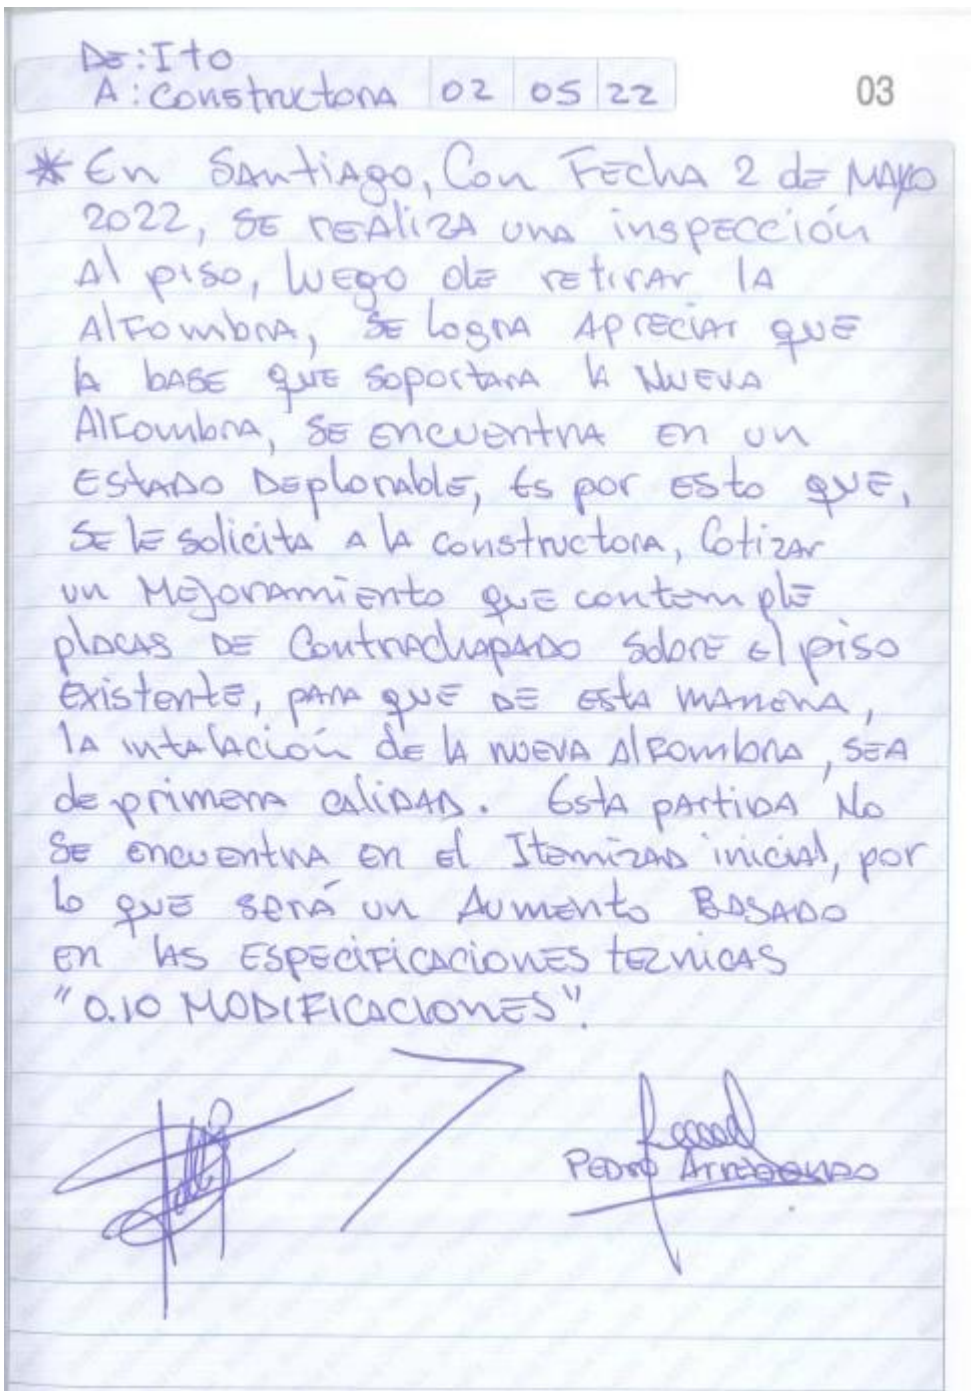 DE: Ito
A: Constructora 02 05 22
03
* En Santiago, Con Fecha 2 de Mayo
2022, se realiza una inspección
Al piso, luego de retirar la
Alfombra, se logra apreciar que
la base que soportara la nueva
Alfombra, se encuentra en un
Estado Deplorable, es por esto que,
se le solicita a la constructora, Cotizar
un Mejoramiento que contemple
placas de Contrachapado sobre el piso
existente, para que de esta manera,
la intalación de la nueva Alfombra, sea
de primera calidad. Esta partida No
se encuentra en el Itemizad inicial, por
lo que será un Aumento Basado
en las Especificaciones tecnicas
"0.10 MODIFICACIONES".
Pedro Arredondo